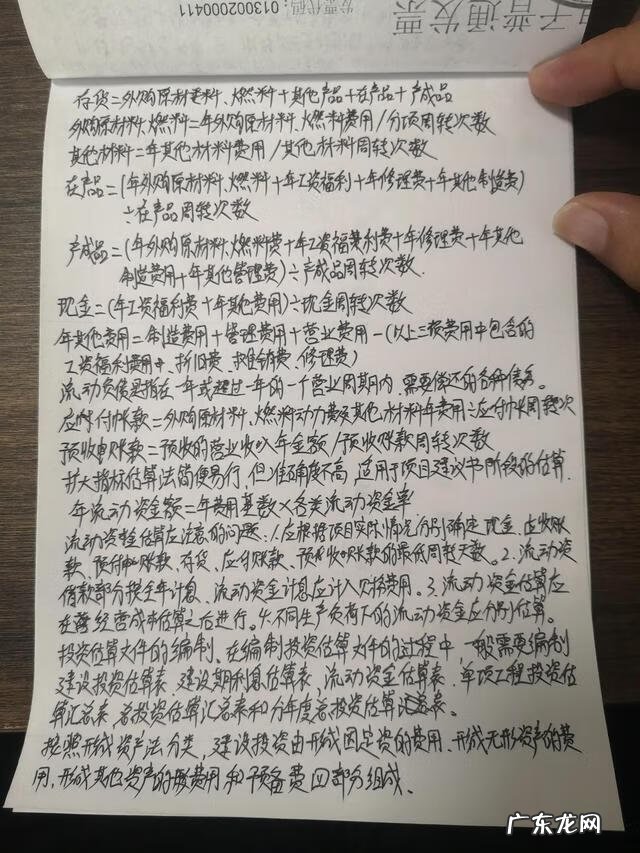 电子普通发票
发票代码：013002000411
存货=外购原材料、燃料+其他产品+在产品+产成品
外购原材料、燃料=年外购原材料、燃料费用/分项周转次数
其他材料=年其他材料费用/其他材料周转次数
在产品=(年外购原材料、燃料+年工资福利+年修理费+年其他制造费)
÷在产品周转次数
产成品=(年外购原材料、燃料费+年工资福利费+年修理费+年其他
制造费用+年其他管理费)÷产成品周转次数.
现金=(年工资福利费+年其他费用)÷现金周转次数
年其他费用=制造费用+管理费用+营业费用-(以上三项费用中包含的
工资福利费用、折旧费、摊销费、修理费)
流动负债是指在一年或超过一年的一个营业周期内,需要偿还的各种债务。
应付帐款=外购原材料、燃料动力费及其他材料年费用÷应付帐周转次
预收账款=预收的营业收入年金额/预收账款周转次数
扩大指标估算法简便易行,但准确度不高,适用于项目建议书阶段的估算.
年流动资金额=年费用基数×各类流动资金率
流动资金估算应注意的问题:1.应根据项目实际情况分别确定现金、应收账
款、预付账款、存货、应付账款、预收账款的最低周转天数。2.流动资
借款部分按全年计息,流动资金计息应计入财务费用。3.流动资金估算应
在经营成本估算之后进行。4.不同生产负荷下的流动资金应分别估算。
投资估算文件的编制、在编制投资估算文件的过程中,一般需要编制
建设投资估算表、建设期利息估算表、流动资金估算表、单项工程投资估
算汇总表、总投资估算汇总表和分年度总投资估算表。
按照形成资产法分类,建设投资由形成固定资的费用、形成无形资产的费
用,形成其他资产的费用和预备费四部分组成、
广东龙网